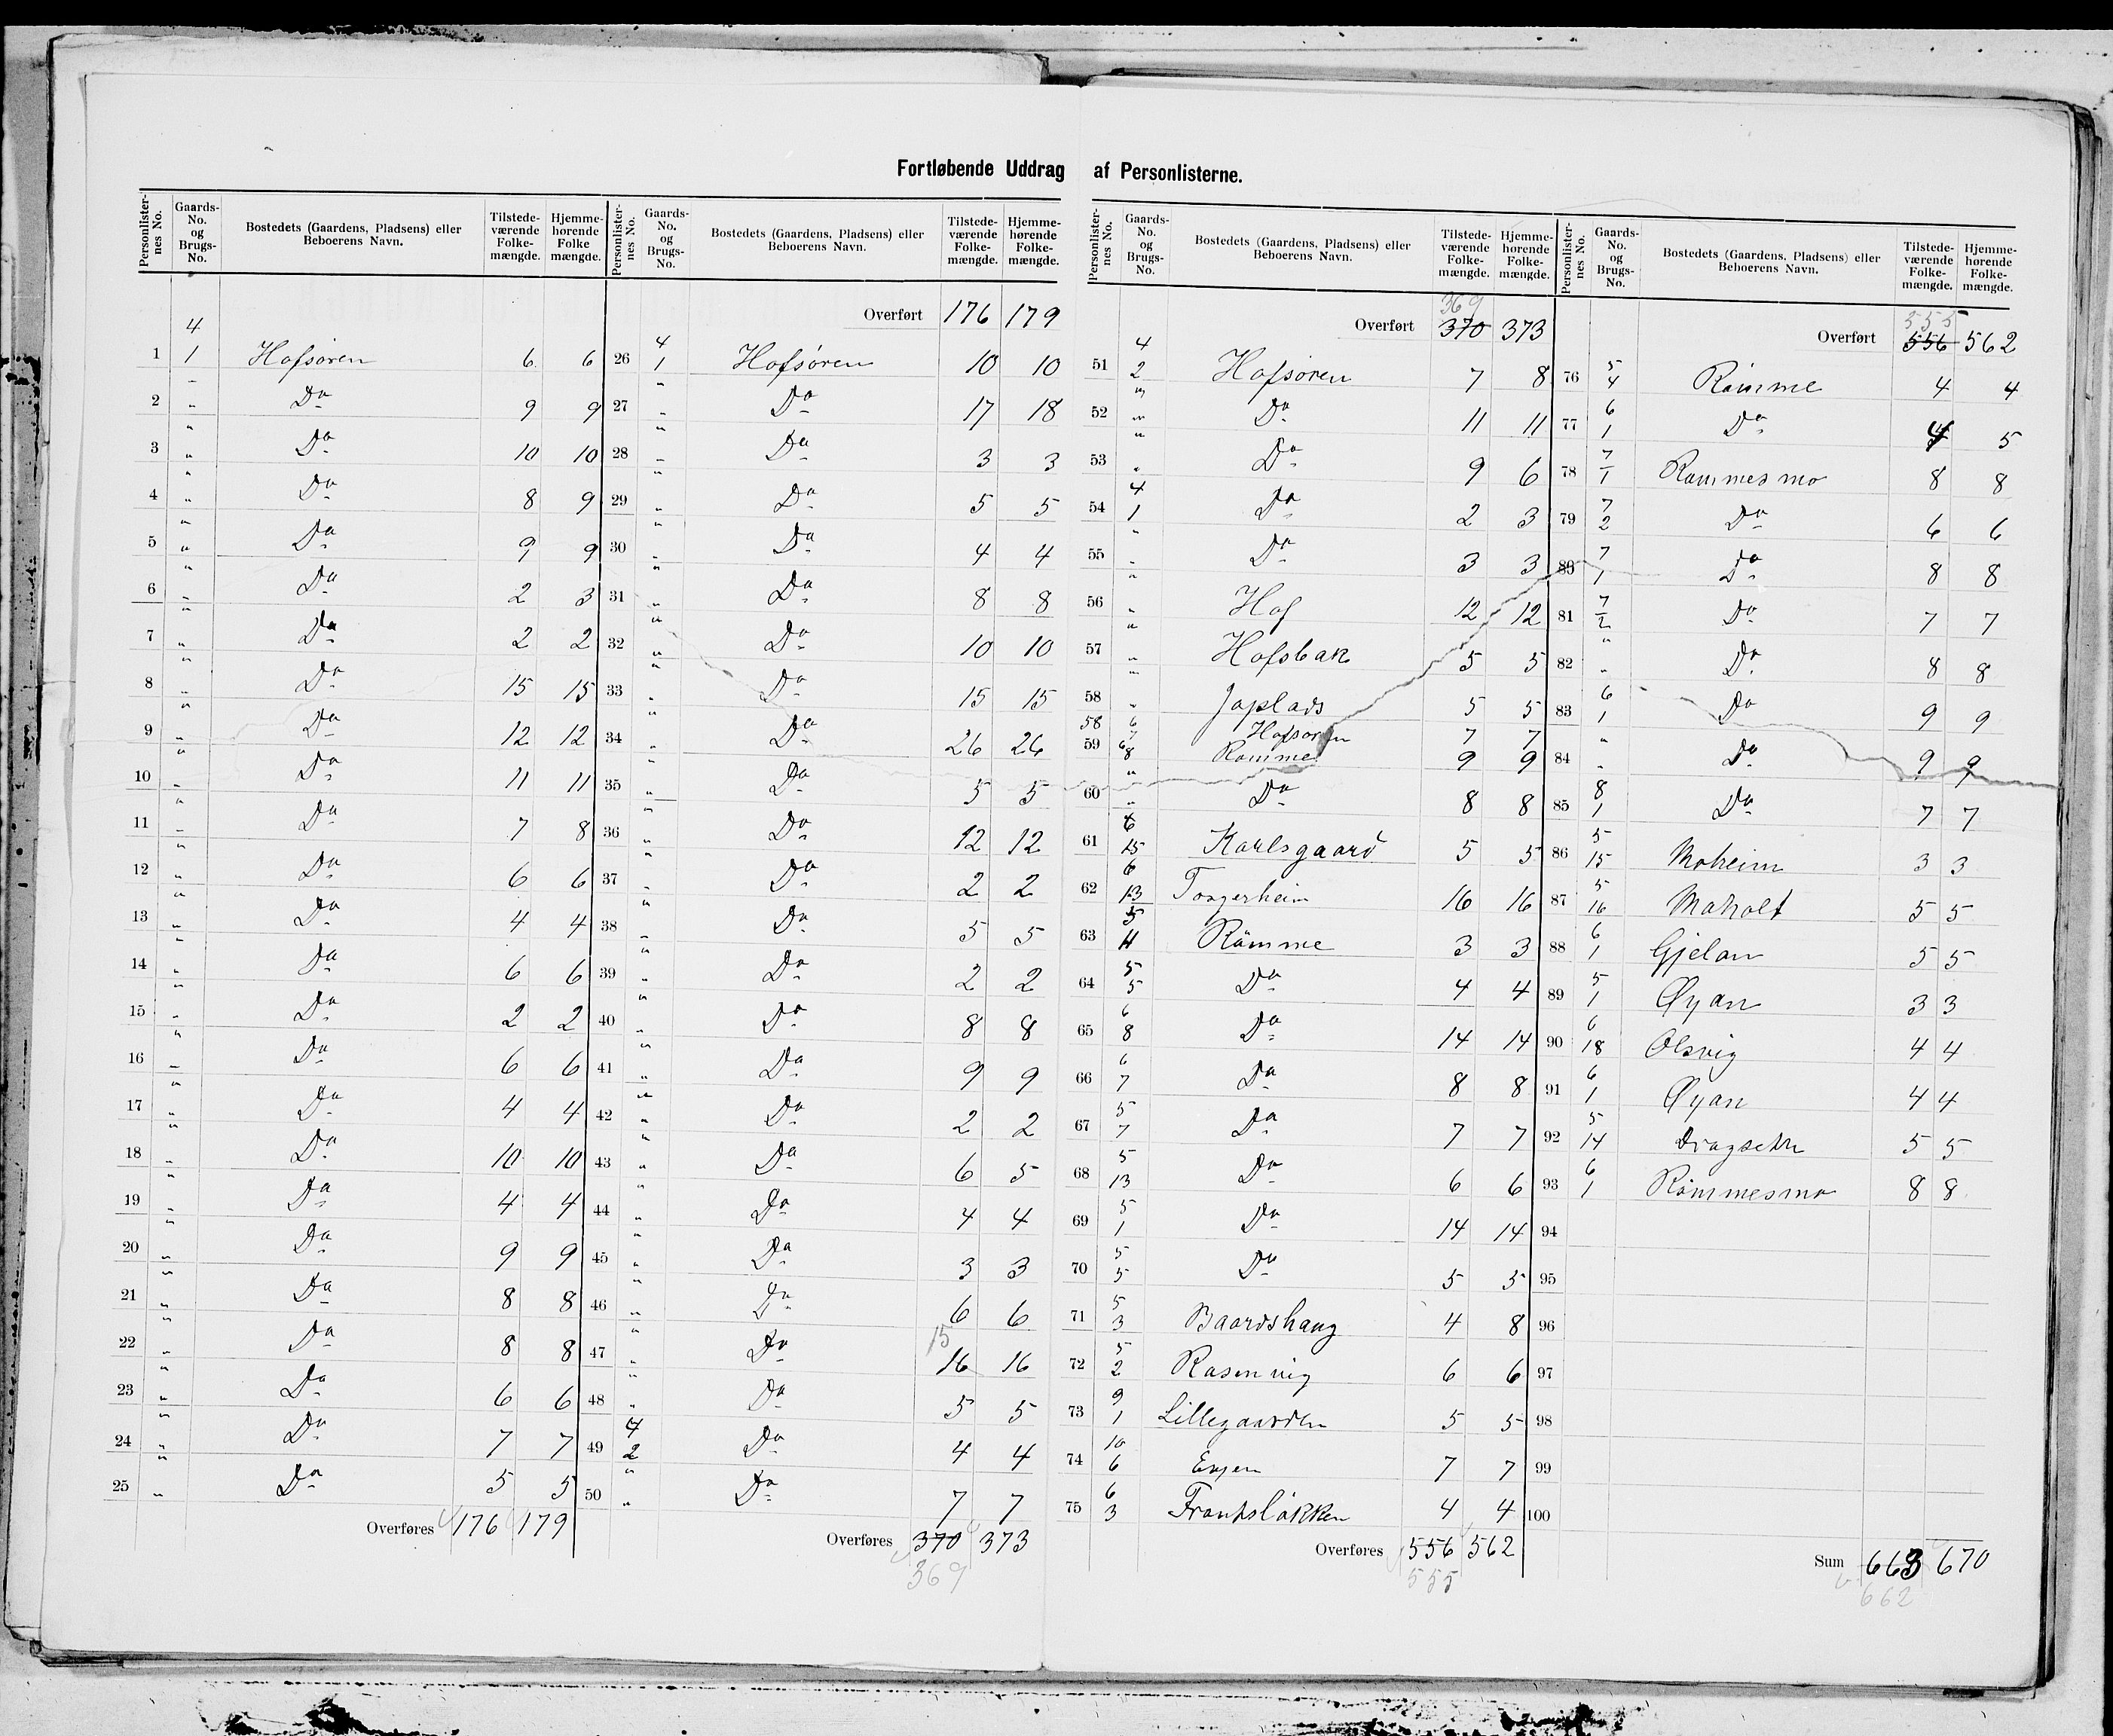 Fortløbende Uddrag af Personlisterne.
Personlisternes No. Gaards-No. og Brugs-No. Bostedets (Gaardens, Pladsens) eller Beboerens Navn. Tilstedeværende Folkemængde. Hjemmehørende Folkemængde.
1 4/1 Hofsøren 6 6
2 " Do 9 9
3 " Do 10 10
4 " Do 8 9
5 " Do 9 9
6 " Do 2 3
7 " Do 2 2
8 " Do 15 15
9 " Do 12 12
10 " Do 11 11
11 " Do 7 8
12 " Do 6 6
13 " Do 4 4
14 " Do 6 6
15 " Do 2 2
16 " Do 6 6
17 " Do 4 4
18 " Do 10 10
19 " Do 4 4
20 " Do 9 9
21 " Do 8 8
22 " Do 8 8
23 " Do 6 6
24 " Do 7 7
25 " Do 5 5
Overføres 176 179
Personlisternes No. Gaards-No. og Brugs-No. Bostedets (Gaardens, Pladsens) eller Beboerens Navn. Tilstedeværende Folkemængde. Hjemmehørende Folkemængde.
Overført 176 179
26 4/1 Hofsøren 10 10
27 " Do 17 18
28 " Do 3 3
29 " Do 5 5
30 " Do 4 4
31 " Do 8 8
32 " Do 10 10
33 " Do 15 15
34 " Do 26 26
35 " Do 5 5
36 " Do 12 12
37 " Do 2 2
38 " Do 5 5
39 " Do 2 2
40 " Do 8 8
41 " Do 9 9
42 " Do 2 2
43 " Do 6 5
44 " Do 4 4
45 " Do 3 3
46 " Do 6 6
15
47 " Do 16 16
48 " Do 5 5
49 4/2 Do 4 4
50 " Do 7 7
Overføres 370 373
369
Personlisternes No. Gaards-No. og Brugs-No. Bostedets (Gaardens, Pladsens) eller Beboerens Navn. Tilstedeværende Folkemængde. Hjemmehørende Folkemængde.
369
Overført 370 373
51 4/2 Hofsøren 7 8
52 " Do 11 11
53 " Do 9 6
54 4/1 Do 2 3
55 " Do 3 3
56 " Hof 12 12
57 " Hofsbak 5 5
58 " Joplads 5 5
58 6/7 Hofsøren 7 7
59 6/8 Rømme 9 9
60 " Do 8 8
61 6/15 Karlsgaard 5 5
62 6/13 Torgerheim 16 16
63 5/4 Rømme 3 3
64 5/5 Do 4 4
65 6/8 Do 14 14
66 6/7 Do 8 8
67 5/7 Do 7 7
68 5/13 Do 6 6
69 5/1 Do 14 14
70 5/5 Do 5 5
71 5/3 Baardshaug 4 8
72 5/2 Rasmvig 6 6
73 9/1 Lillegaarden 5 5
74 10/6 Evjen 7 7
75 6/3 Frantsløkken 4 4
Overføres 556 562
555
Personlisternes No. Gaards-No. og Brugs-No. Bostedets (Gaardens, Pladsens) eller Beboerens Navn. Tilstedeværende Folkemængde. Hjemmehørende Folkemængde.
555
Overført 556 562
76 5/4 Rømme 4 4
77 6/1 Do 4 5
78 7/1 Rømmesmo 8 8
79 7/2 Do 6 6
80 7/1 Do 8 8
81 7/2 Do 7 7
82 " Do 8 8
83 6/1 Do 9 9
84 " Do 9 9
85 8/1 Do 7 7
86 5/15 Moheim 3 3
87 5/16 Moholt 5 5
88 6/1 Gjelan 5 5
89 5/1 Øyan 3 3
90 6/18 Olsvig 4 4
91 6/1 Øyan 4 4
92 5/14 Dragseth 5 5
93 6/1 Rømmesmo 8 8
94
95
96
97
98
99
100
Sum 663 670
662